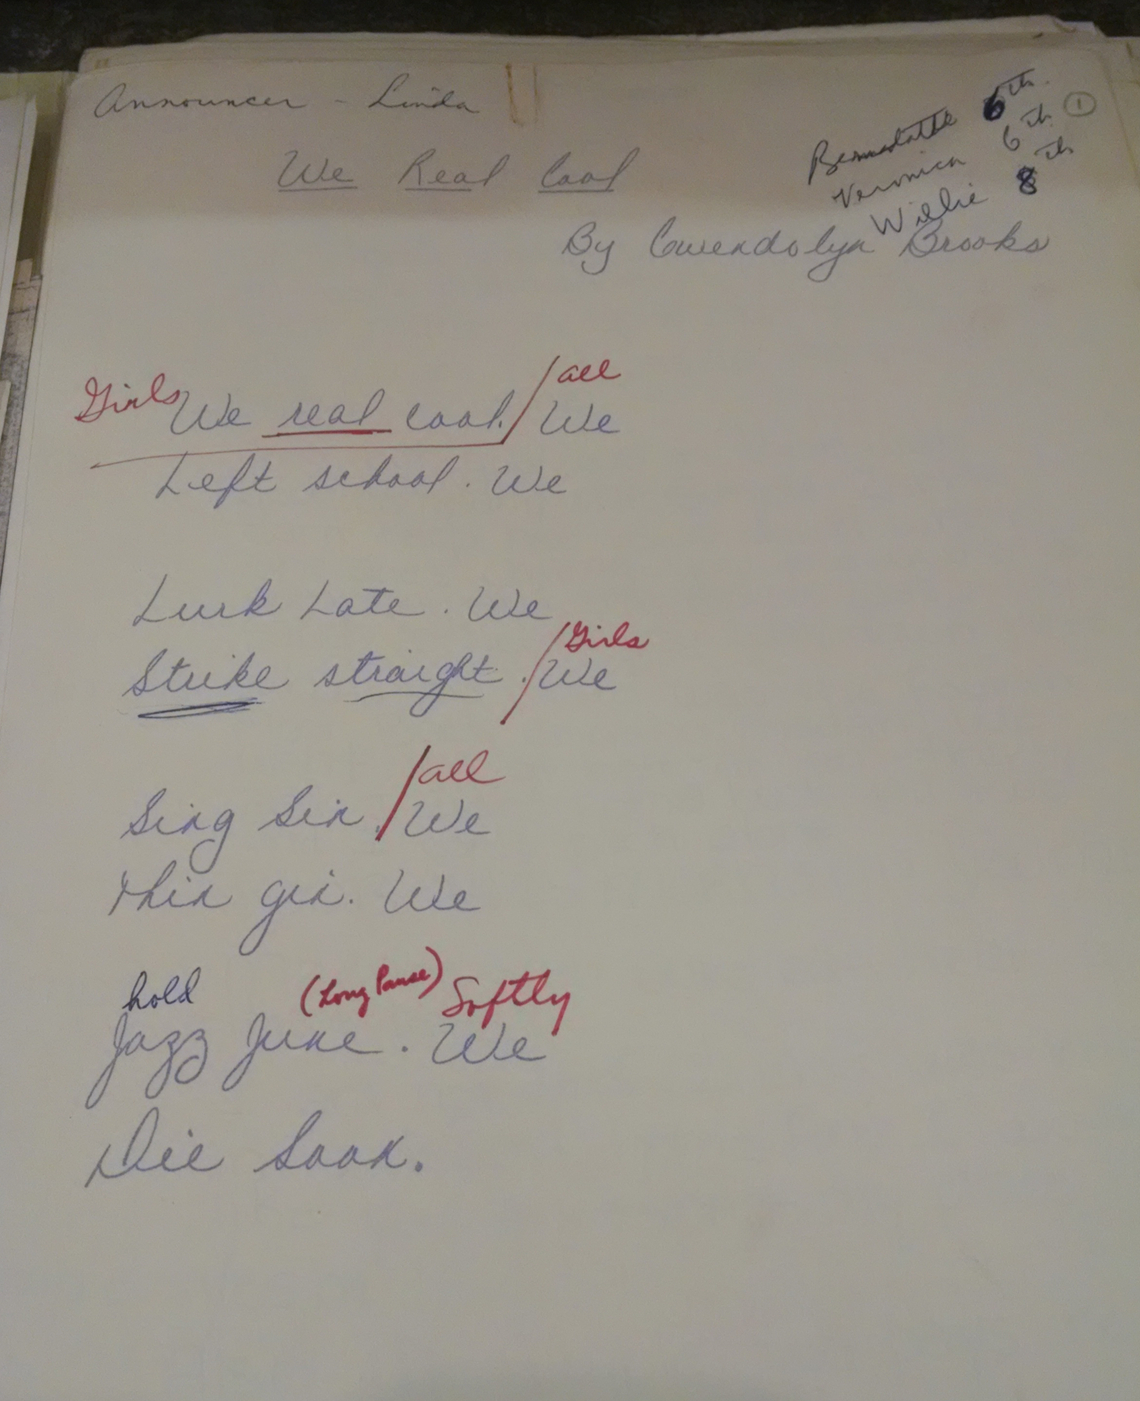 Announcer - Linda
Bernadette 6th
Veronica 6th 1
Willie 8th
We Real Cool
By Gwendolyn Brooks
Girls We real cool. / all We
Left school. We
Lurk Late. We
Strike straight. / Girls We
Sing Sin. / all We
thin gin. We
hold (Long Pause) Softly
Jazz June. We
Die Soon.